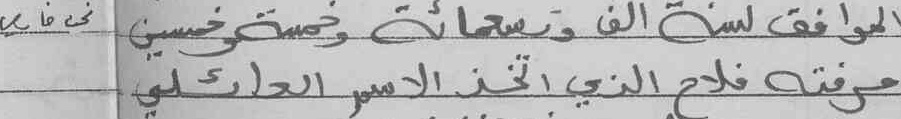 الموافق لسنة الف وتسعمائة وخمسة وخمسين
حرفته فلاح الذي اتخذ الاسم العائلي